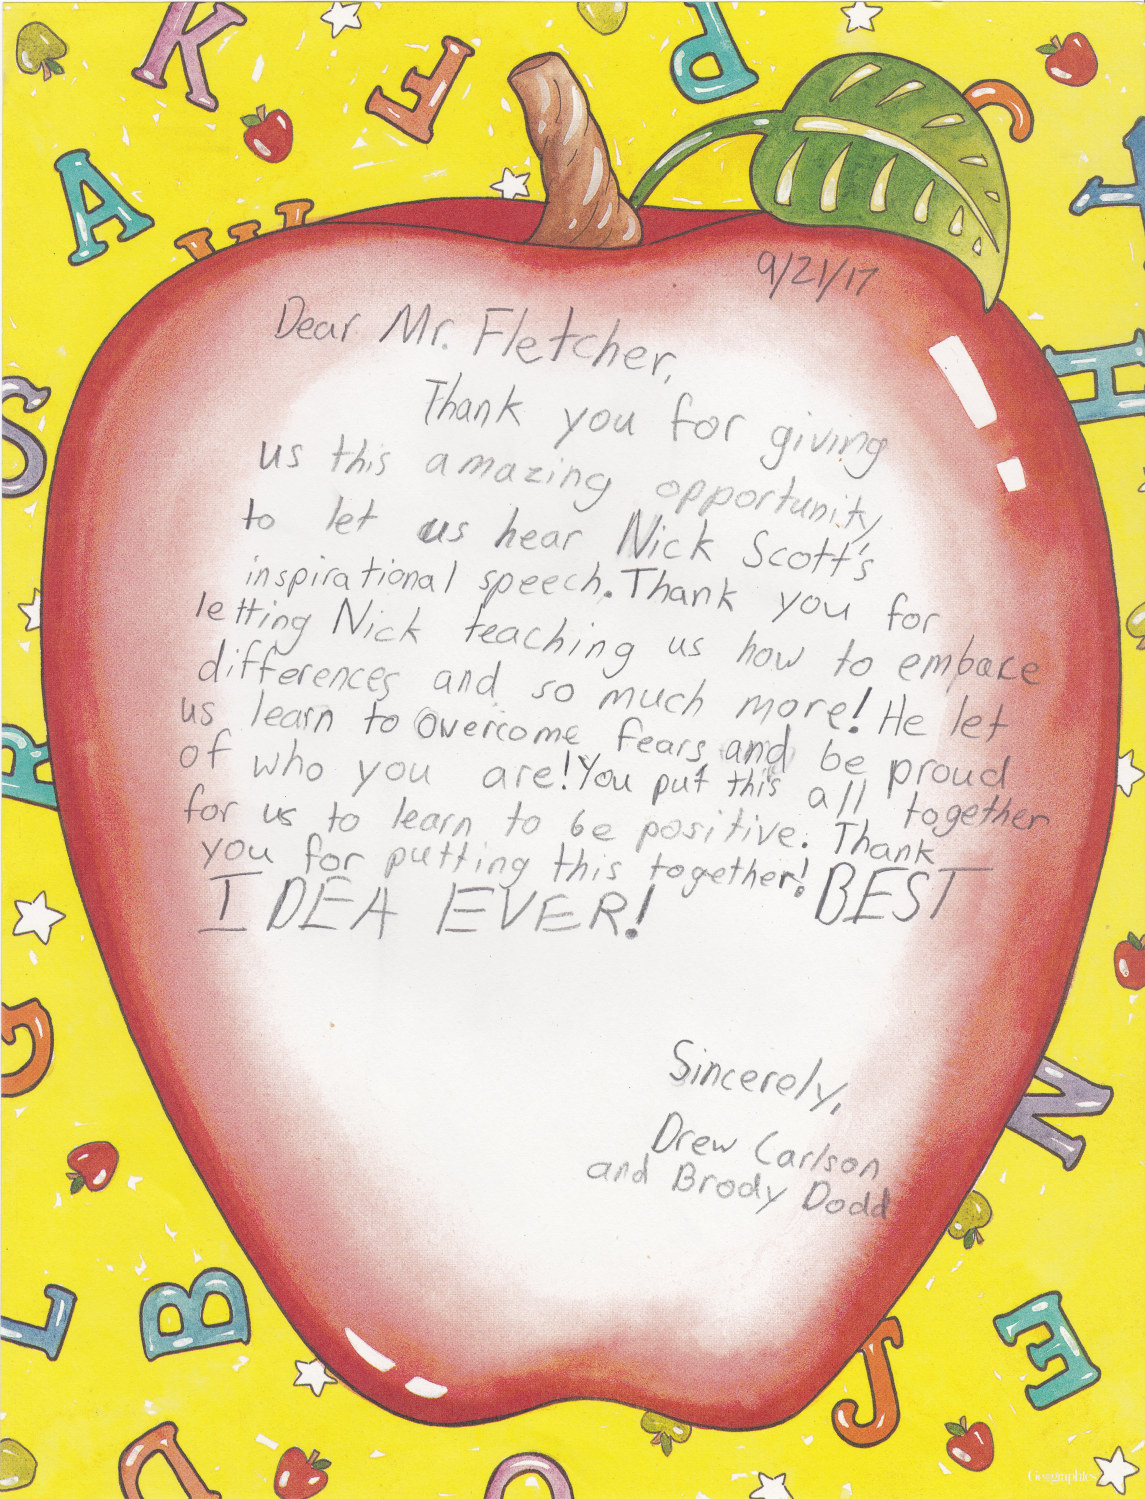 9/21/17
Dear Mr. Fletcher,
Thank you for giving
us this amazing opportunity
to let us hear Nick Scott's
inspirational speech. Thank you for
letting Nick teaching us how to embace
differences and so much more! He let
us learn to overcome fears and be proud
of who you are! You put this all together
for us to learn to be positive. Thank
you for putting this together! BEST
IDEA EVER!
Sincerely,
Drew Carlson
and Brody Dodd
Geographics